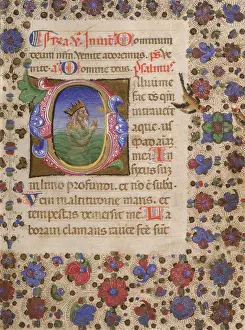 stra. v. Invit. Dominum
deum nrm Venite adoremus. ps. Ve
nite. a. Domine deus. Psalmus
S aluum me
fac ds qm
intrauerunt
aque usq
ad aiam
meam. In
fixus sum
in limo profundi. et no e suba.
Veni in altitudine maris. et
tempestas demersit me. La
boraui clamans rauce fce sut